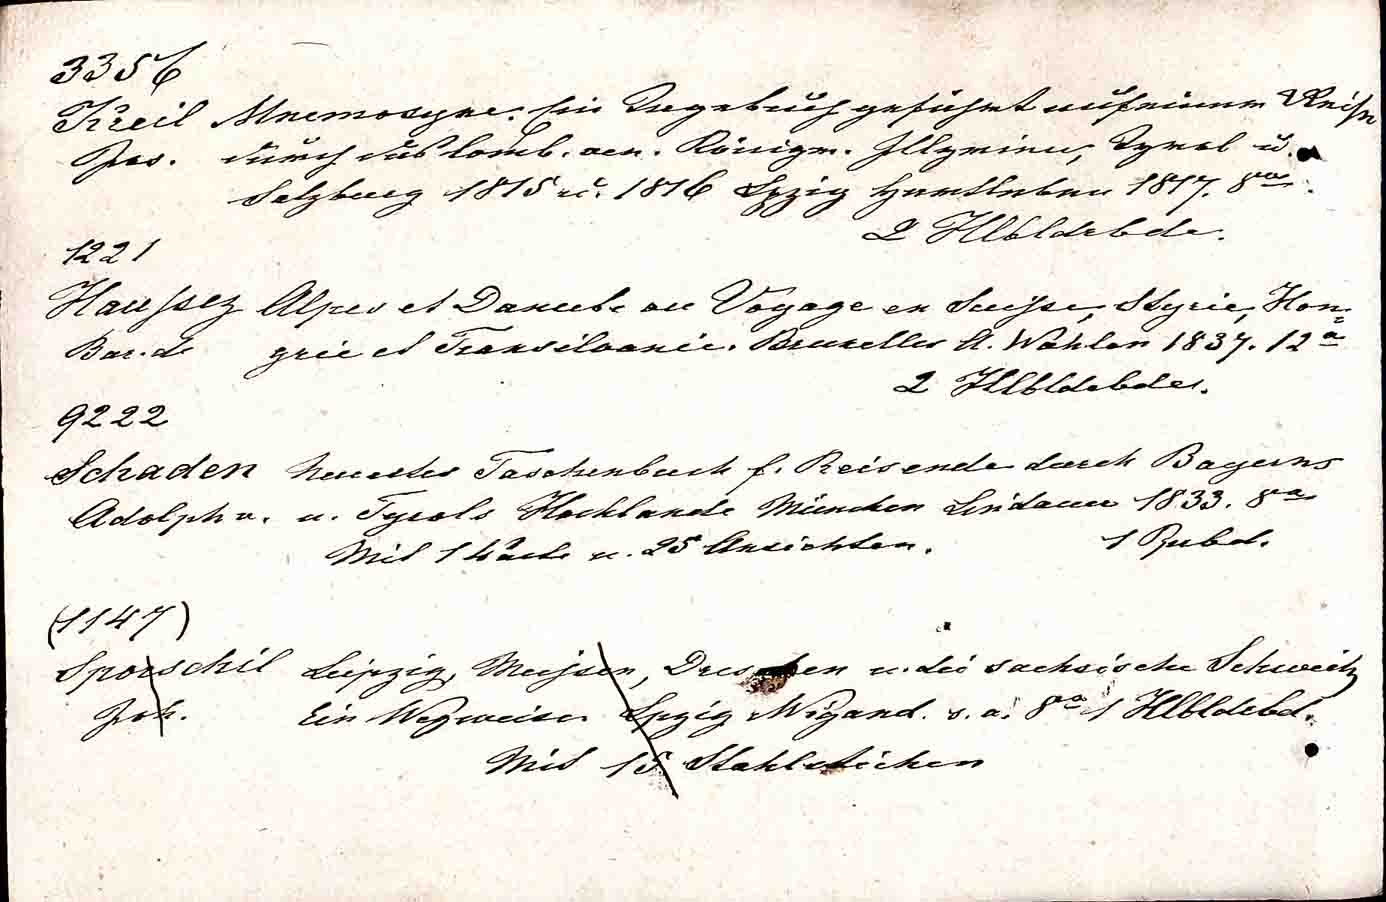 3356
Kreil Mnemosyne. Ein Tagebuch geführt auf einer Reise
Jos. durch das lomb. ven. Königr. Illyrien, Tyrol u.
Salzburg 1815 u. 1816 Lpzig Hartleben 1817. 8vo.
2 Hlbldrbde.
1221
Haussez Alpes et Danube ou Voyage en Suisse, Styrie, Hon=
Bar. de grie et Transilvanie. Bruxelles A. Wahlen 1837. 12o
2 Hlbldrbde.
9222
Schaden Neuestes Taschenbuch f. Reisende durch Bayerns
Adolph v. u. Tyrols Hochlande München Lindauer 1833. 8o
Mit 1 Karte u. 25 Ansichten. 1 Ppbd.
(1147)
Sporschil Leipzig, Meissen, Dresden u. die sachsische Schweitz
Joh. Ein Wegweiser Lpzig Wigand. s. a. 8o 1 Hlbldrbd.
Mit 15 Stahlstichen